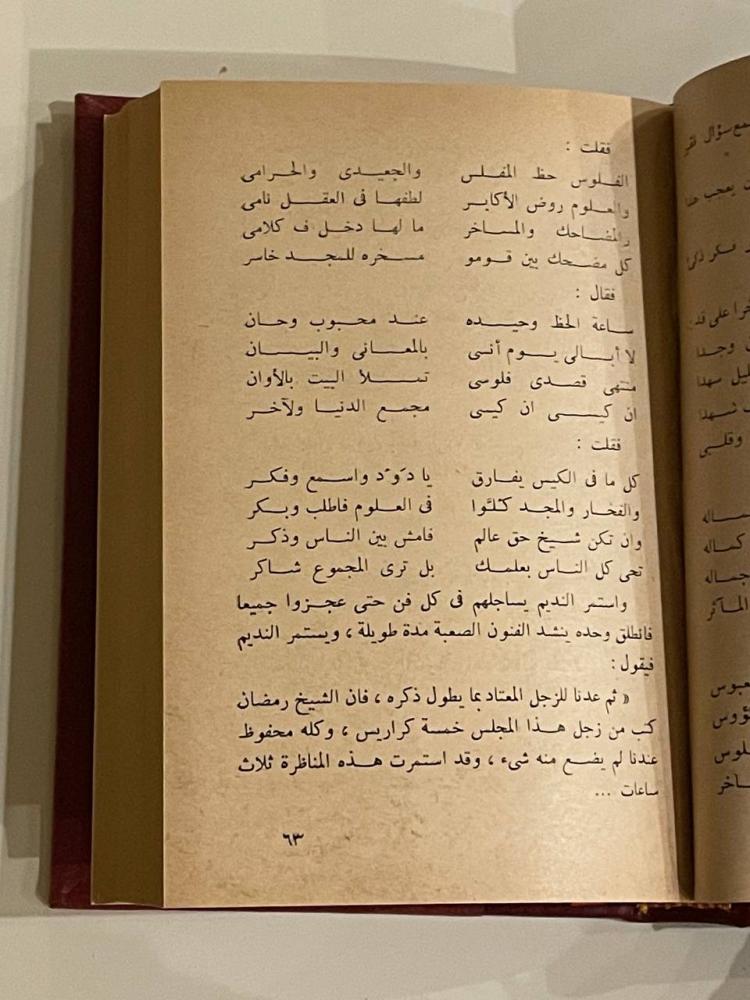 فقلت :
الفلوس حظ المفلس والجعيدى والحرامى
والعلوم روض الأكابر لطفها فى العقل نامى
والمضاحك والمساخر ما لها دخل ف كلامى
كل مضحك بين قومو مسخره للمجد خاسر
فقال :
ساعة الحظ وحيده عند محبوب وحان
لا أبالى يوم أنسى بالمعانى والبيان
منتهى قصدى فلوسى تملأ البيت بالأوان
ان كيسى ان كيى مجمع الدنيا ولآخر
فقلت :
كل ما فى الكيس يفارق يا دَوَد واسمع وفكر
والفخار والمجد كلُّوا فى العلوم فاطلب وبكر
وان تكن شيخ حق عالم فامش بين الناس وذكر
تحى كل الناس بعلمك بل ترى المجموع شاكر
واستمر النديم يساجلهم فى كل فن حتى عجزوا جميعا
فانطلق وحده ينشد الفنون الصعبة مدة طويلة ، ويستمر النديم
فيقول :
« ثم عدنا للزجل المعتاد بما يطول ذكره ، فان الشيخ رمضان
كتب من زجل هذا المجلس خمسة كراريس ، وكله محفوظ
عندنا لم يضع منه شىء ، وقد استمرت هذه المناظرة ثلاث
ساعات ...
٦٣
سؤال
يعجب هذا
فكر
على
وجدا
سهدا
شهدا
وقلبى
ماله
كماله
جماله
المآثر